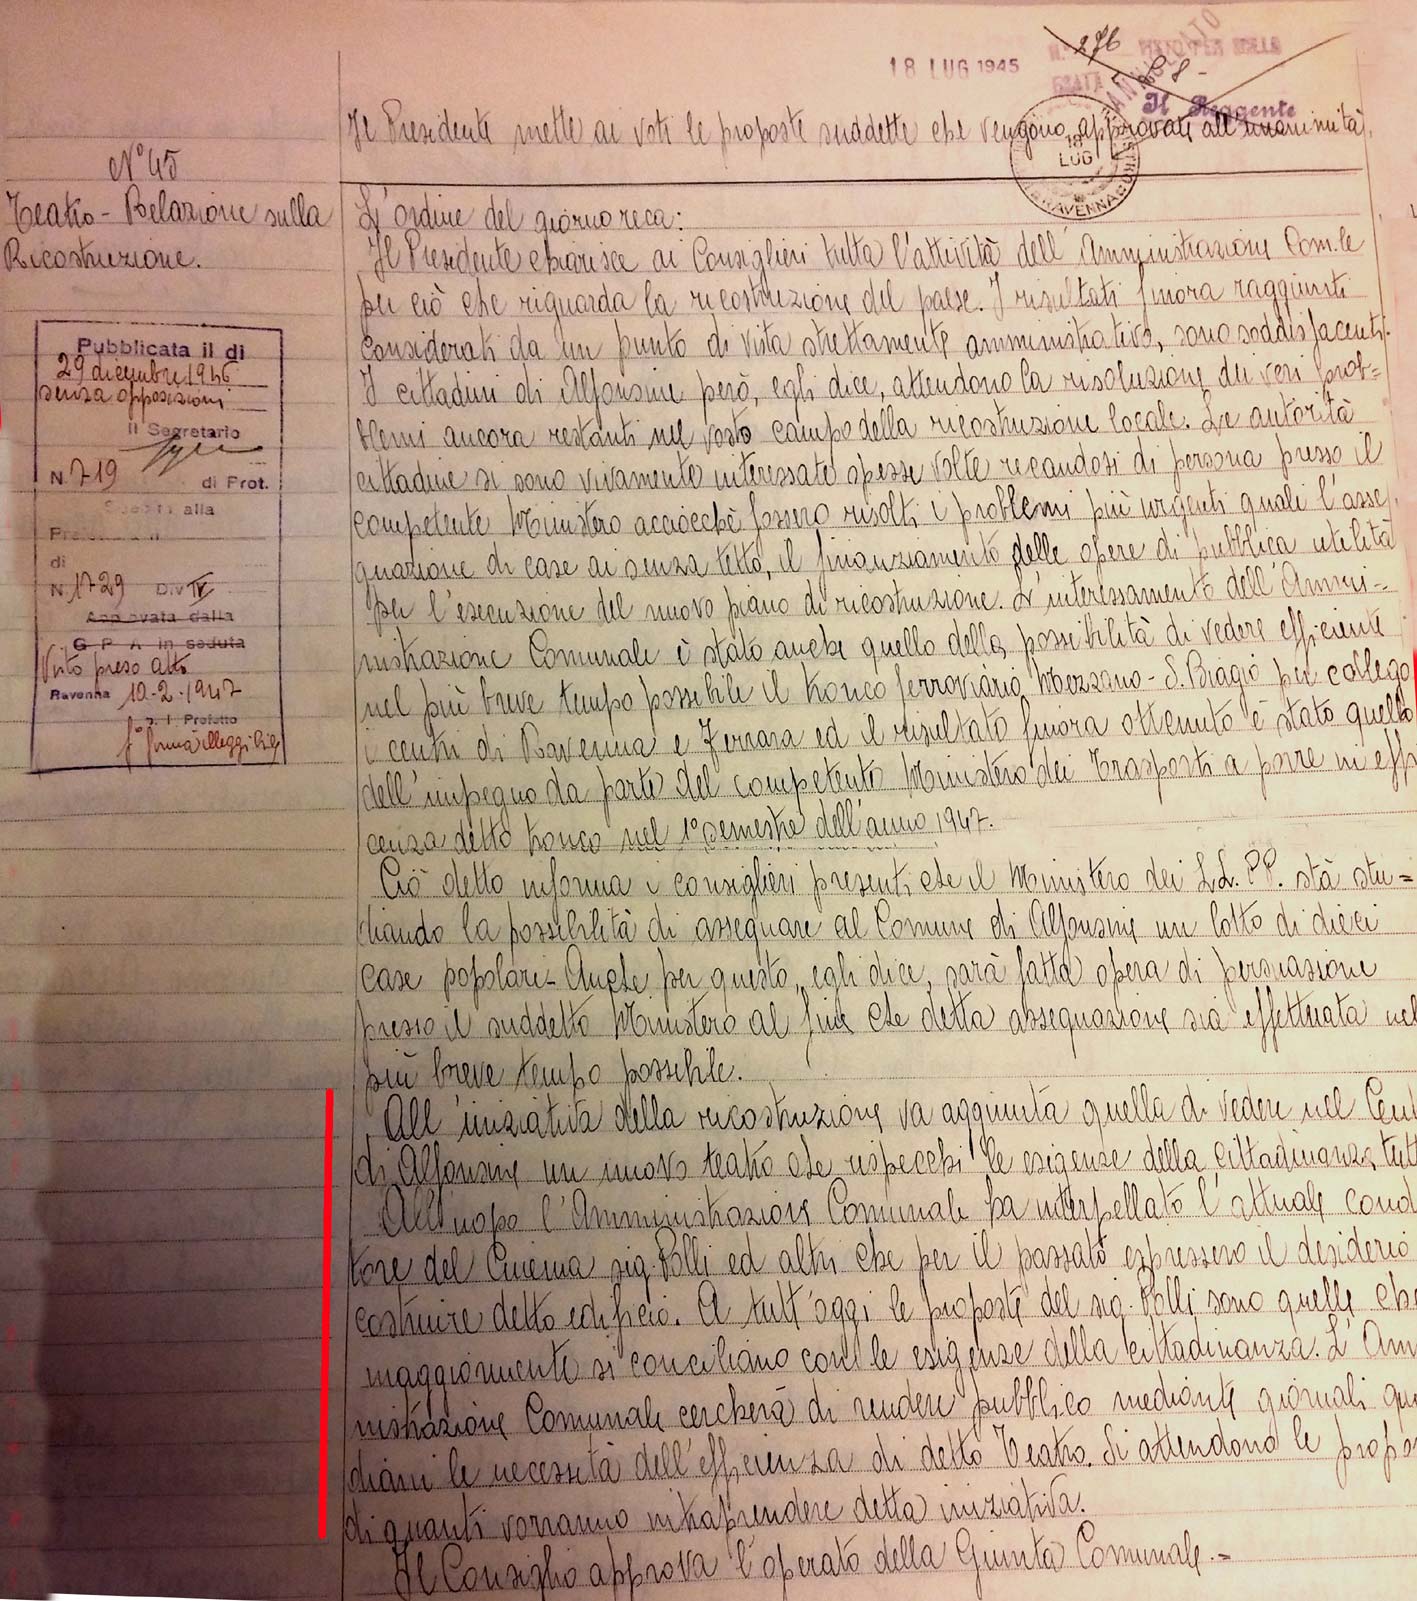 276
18 LUG 1945
ANNULLATO
Il Reggente
18
LUG
RAVENNA
Il Presidente mette ai voti le proposte suddette che vengono approvate all'unanimità.
N° 45
Teatro - Relazione sulla
Ricostruzione.
Pubblicata il dì
29 dicembre 1946
senza opposizioni
Il Segretario
N. 719 di Prot.
alla
di
N. 1729 Div IV
Approvata dalla
G P A in seduta
Visto preso atto
Ravenna 10-2-1947
p. Il Prefetto
f° firma illeggibile
L'ordine del giorno reca:
Il Presidente chiarisce ai Consiglieri tutta l'attività dell'Amministrazione Com.le
per ciò che riguarda la ricostruzione del paese. I risultati finora raggiunti
considerati da un punto di vista strettamente amministrativo, sono soddisfacenti.
I cittadini di Alfonsine però, egli dice, attendono la risoluzione dei veri prob=
blemi ancora restanti nel vasto campo della ricostruzione locale. Le autorità
cittadine si sono vivamente interessate spesse volte recandosi di persona presso il
competente Ministero acciocchè fossero risolti i problemi più urgenti quali l'asse
gnazione di case ai senza tetto, il finanziamento delle opere di pubblica utilità
per l'esecuzione del nuovo piano di ricostruzione. L'interessamento dell'Ammi-
nistrazione Comunale è stato anche quello della possibilità di vedere efficiente
nel più breve tempo possibile il tronco ferroviario Mezzano - S. Biagio per collega
i centri di Ravenna e Ferrara ed il risultato finora ottenuto è stato quello
dell'impegno da parte del competente Ministero dei Trasporti a porre in effi
cenza detto tronco nel 1° semestre dell'anno 1947.
Ciò detto informa i consiglieri presenti che il Ministero dei LL. PP. stà stu=
diando la possibilità di assegnare al Comune di Alfonsine un lotto di dieci
case popolari - Anche per questo, egli dice, sarà fatta opera di persuasione
presso il suddetto Ministero al fine che detta assegnazione sia effettuata nel
più breve tempo possibile.
All'iniziativa della ricostruzione va aggiunta quella di vedere nel Cent
di Alfonsine un nuovo teatro che rispecchi le esigenze della cittadinanza tutt
All'uopo l'Amministrazione Comunale ha interpellato l'attuale condut
tore del Cinema sig. Polli ed altri che per il passato espressero il desiderio
costruire detto edificio. A tutt'oggi le proposte del sig. Polli sono quelle che
maggiormente si conciliano con le esigenze della cittadinanza. L'Am
nistrazione Comunale cercherà di rendere pubblico mediante giornali quo
diani le necessità dell'efficienza di detto Teatro. Si attendono le propo
di quanti vorranno intraprendere detta iniziativa.
Il Consiglio approva l'operato della Giunta Comunale.=